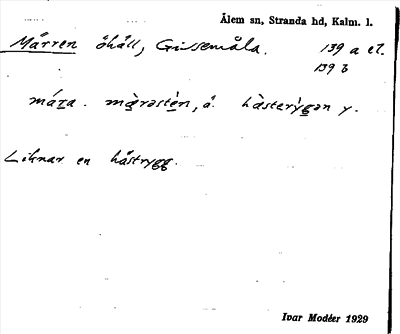 Ålem sn, Stranda hd, Kalm. l.
Märren öhäll, Grissemåla. 139 a et.
139 b
mára. mæ̀rəstèn, å. hàsterỳgən y.
Liknar en hästrygg.
Ivar Modéer 1929